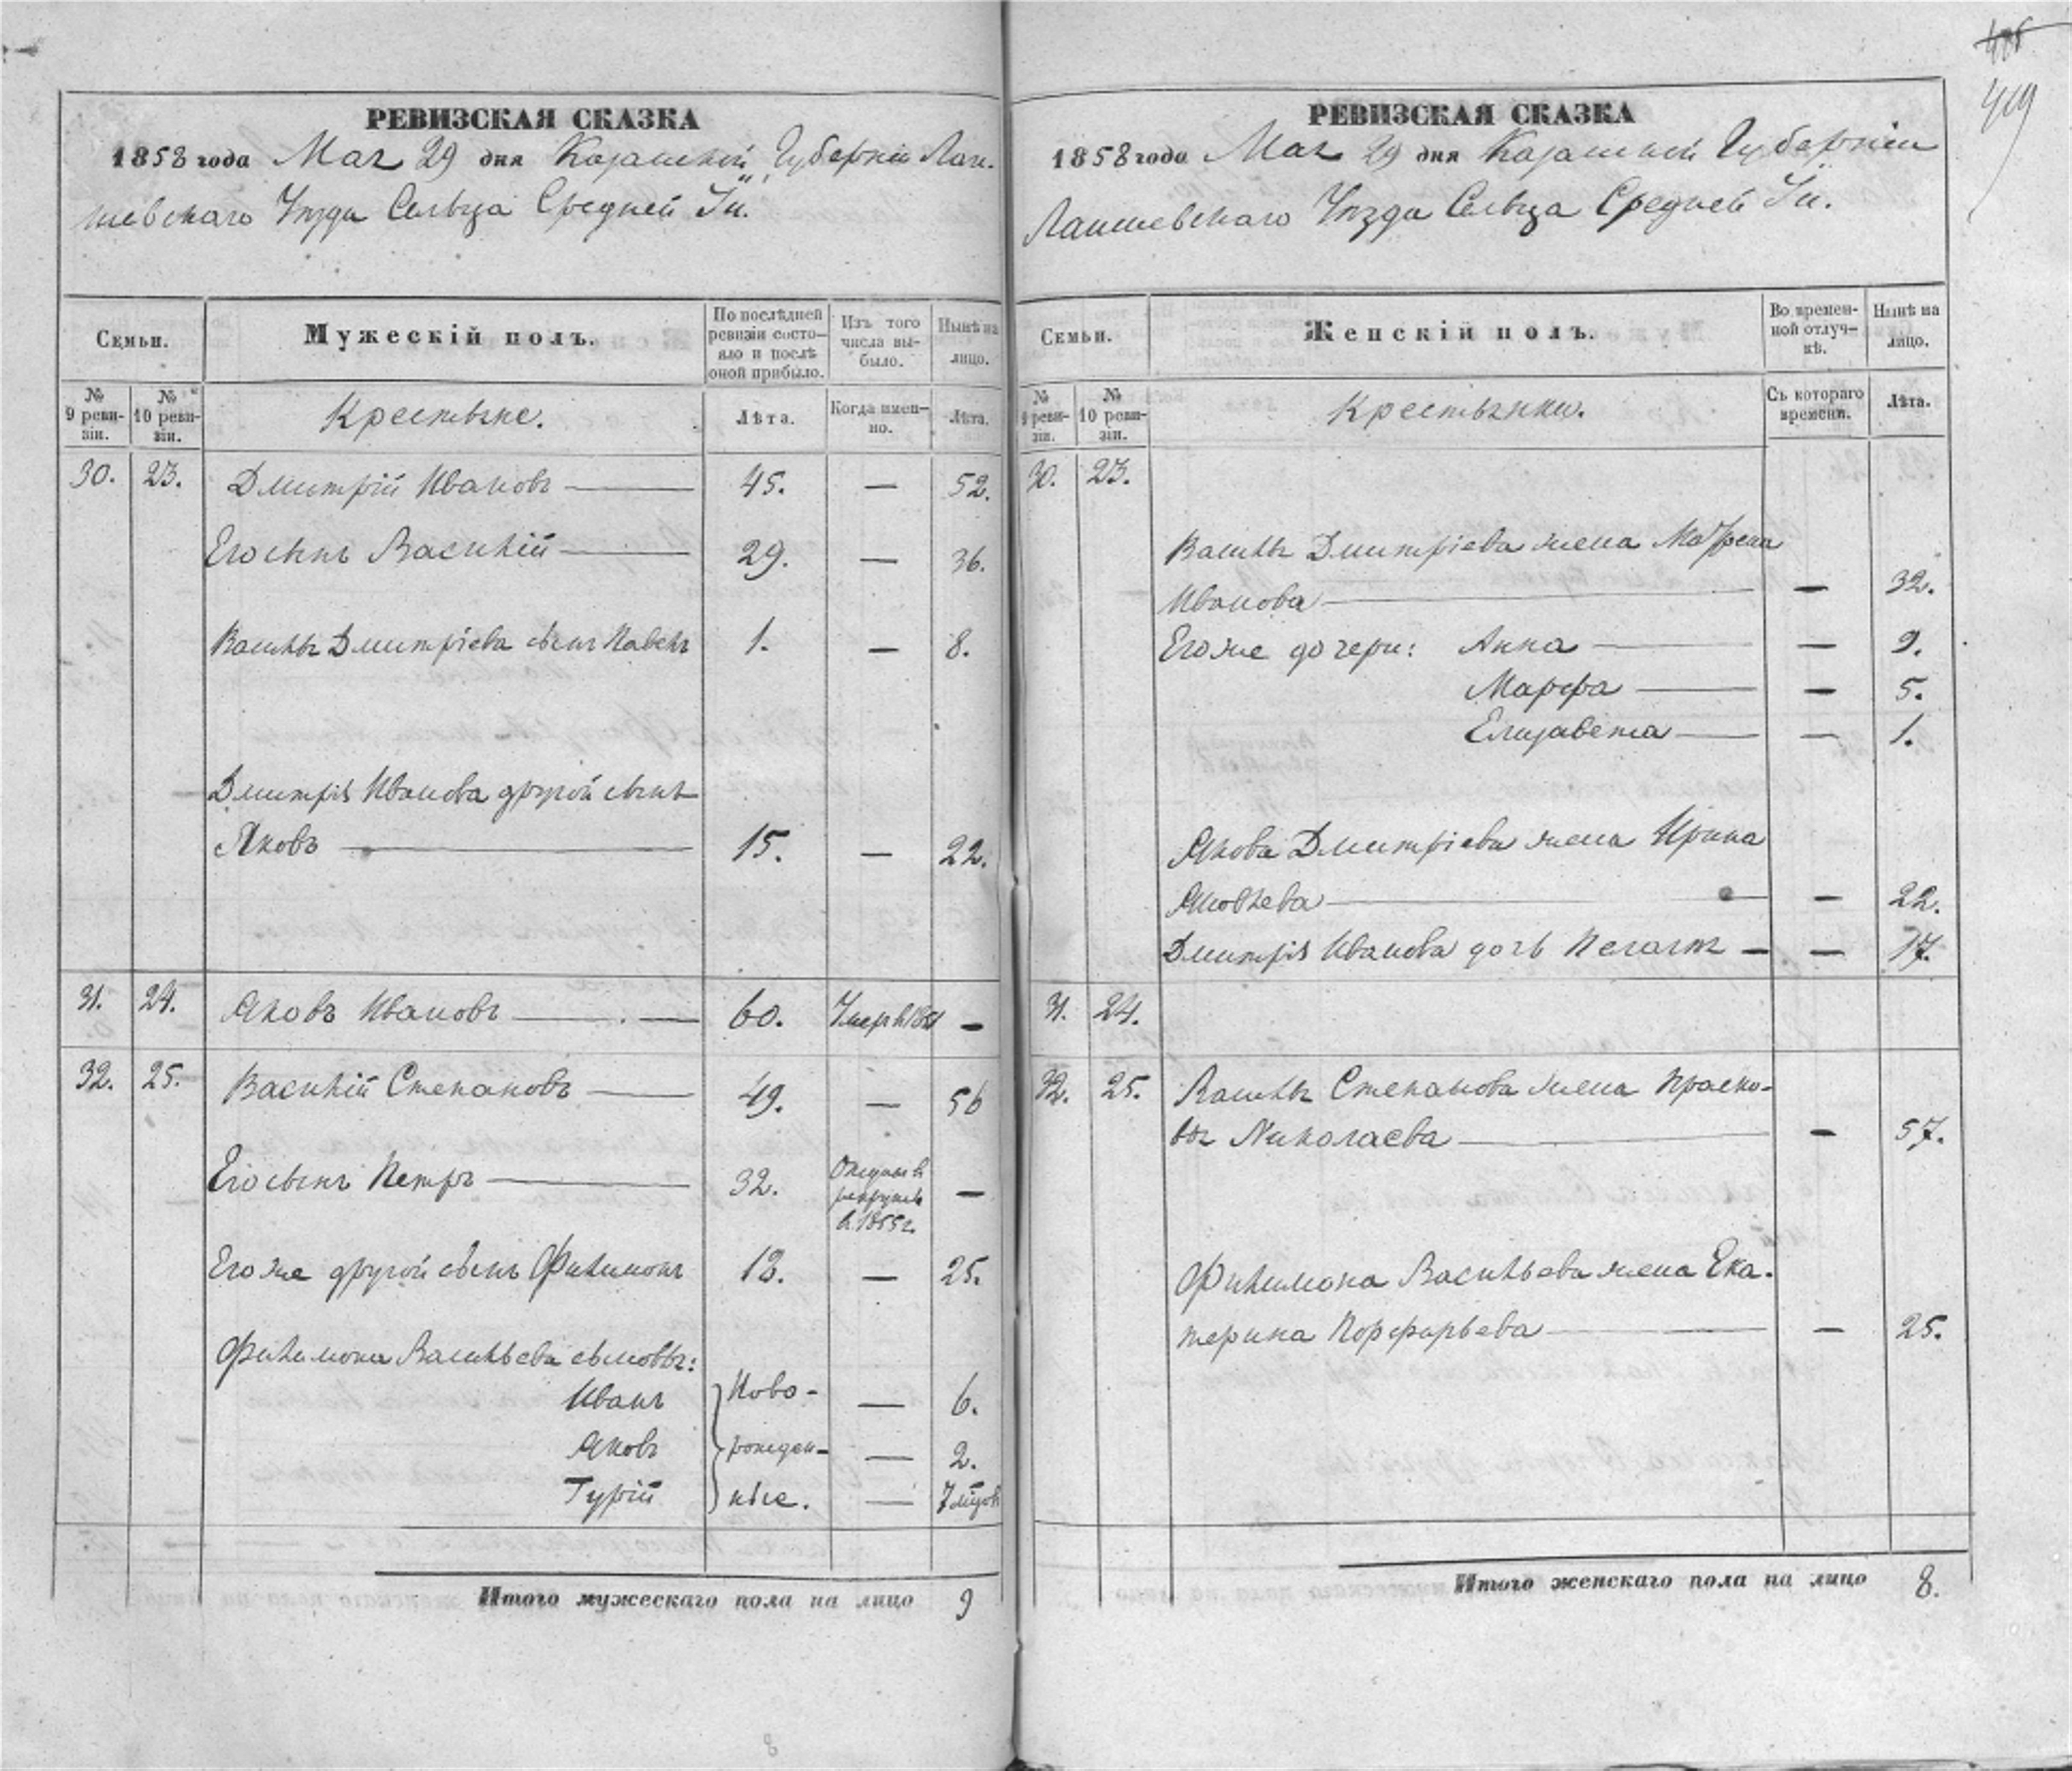 406
419
РЕВИЗСКАЯ СКАЗКА
1858 года Мая 29 дня Казанской Губерніи Лаи-
шевскаго Уѣзда Сельца Средней Ии.
Семьи.
Мужескій полъ.
По послѣдней ревизіи состояло и послѣ оной прибыло.
Изъ того числа выбыло.
Нынѣ на лицо.
№ 9 ревизіи.
№ 10 ревизіи.
Крестьяне.
Лѣта.
Когда именно.
Лѣта.
30. 23. Дмитрій Ивановъ 45. — 52.
Его сынъ Василій 29. — 36.
Василья Дмитріева сынъ Павелъ 1. — 8.
Дмитрія Иванова другой сынъ
Яковъ 15. — 22.
31. 24. Яковъ Ивановъ 60. Умеръ 1851 —
32. 25. Василій Степановъ 49. — 56
Его сынъ Петръ 32. Отданъ въ рекруты в 1855 г. —
Его же другой сынъ Филимонъ 18. — 25.
Филимона Васильева сыновья:
Иванъ Ново- — 6.
Яковъ рожден- — 2.
Гурій ные. — 7 мцовъ
Итого мужескаго пола на лицо 9
РЕВИЗСКАЯ СКАЗКА
1858 года Мая 29 дня Казанской Губерніи
Лаишевскаго Уѣзда Сельца Средней Ии.
Семьи.
Женскій полъ.
Во временной отлучкѣ.
Нынѣ на лицо.
№ 9 ревизіи.
№ 10 ревизіи.
Крестьянки.
Съ котораго времени.
Лѣта.
30. 23.
Василья Дмитріева жена Матрена
Иванова — 32.
Его же дочери: Анна — 9.
Марфа — 5.
Елизавета — 1.
Якова Дмитріева жена Ирина
Яковлева — 22.
Дмитрія Иванова дочь Пелагія — — 17.
31. 24.
32. 25. Василья Степанова жена Праско-
вья Николаева — 57.
Филимона Васильева жена Ека-
терина Порфирьева — 25.
Итого женскаго пола на лицо 8.